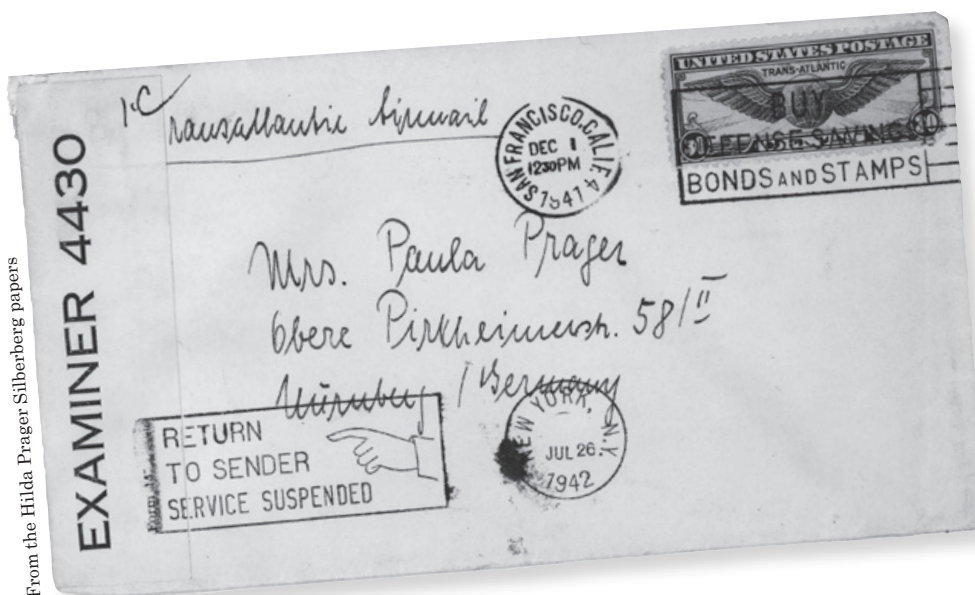 From the Hilda Prager Silberberg papers
EXAMINER 4430
1·C
Transatlantic Airmail
SAN FRANCISCO, CALIF. 4
DEC 1
1230PM
1941
UNITED STATES POSTAGE
TRANS-ATLANTIC
BUY
DEFENSE SAVINGS
BONDS AND STAMPS
Mrs. Paula Prager
Obere Pirkheimerstr. 58/II
Nürnberg / Germany
RETURN
TO SENDER
SERVICE SUSPENDED
NEW YORK, N.Y.
JUL 26
1942